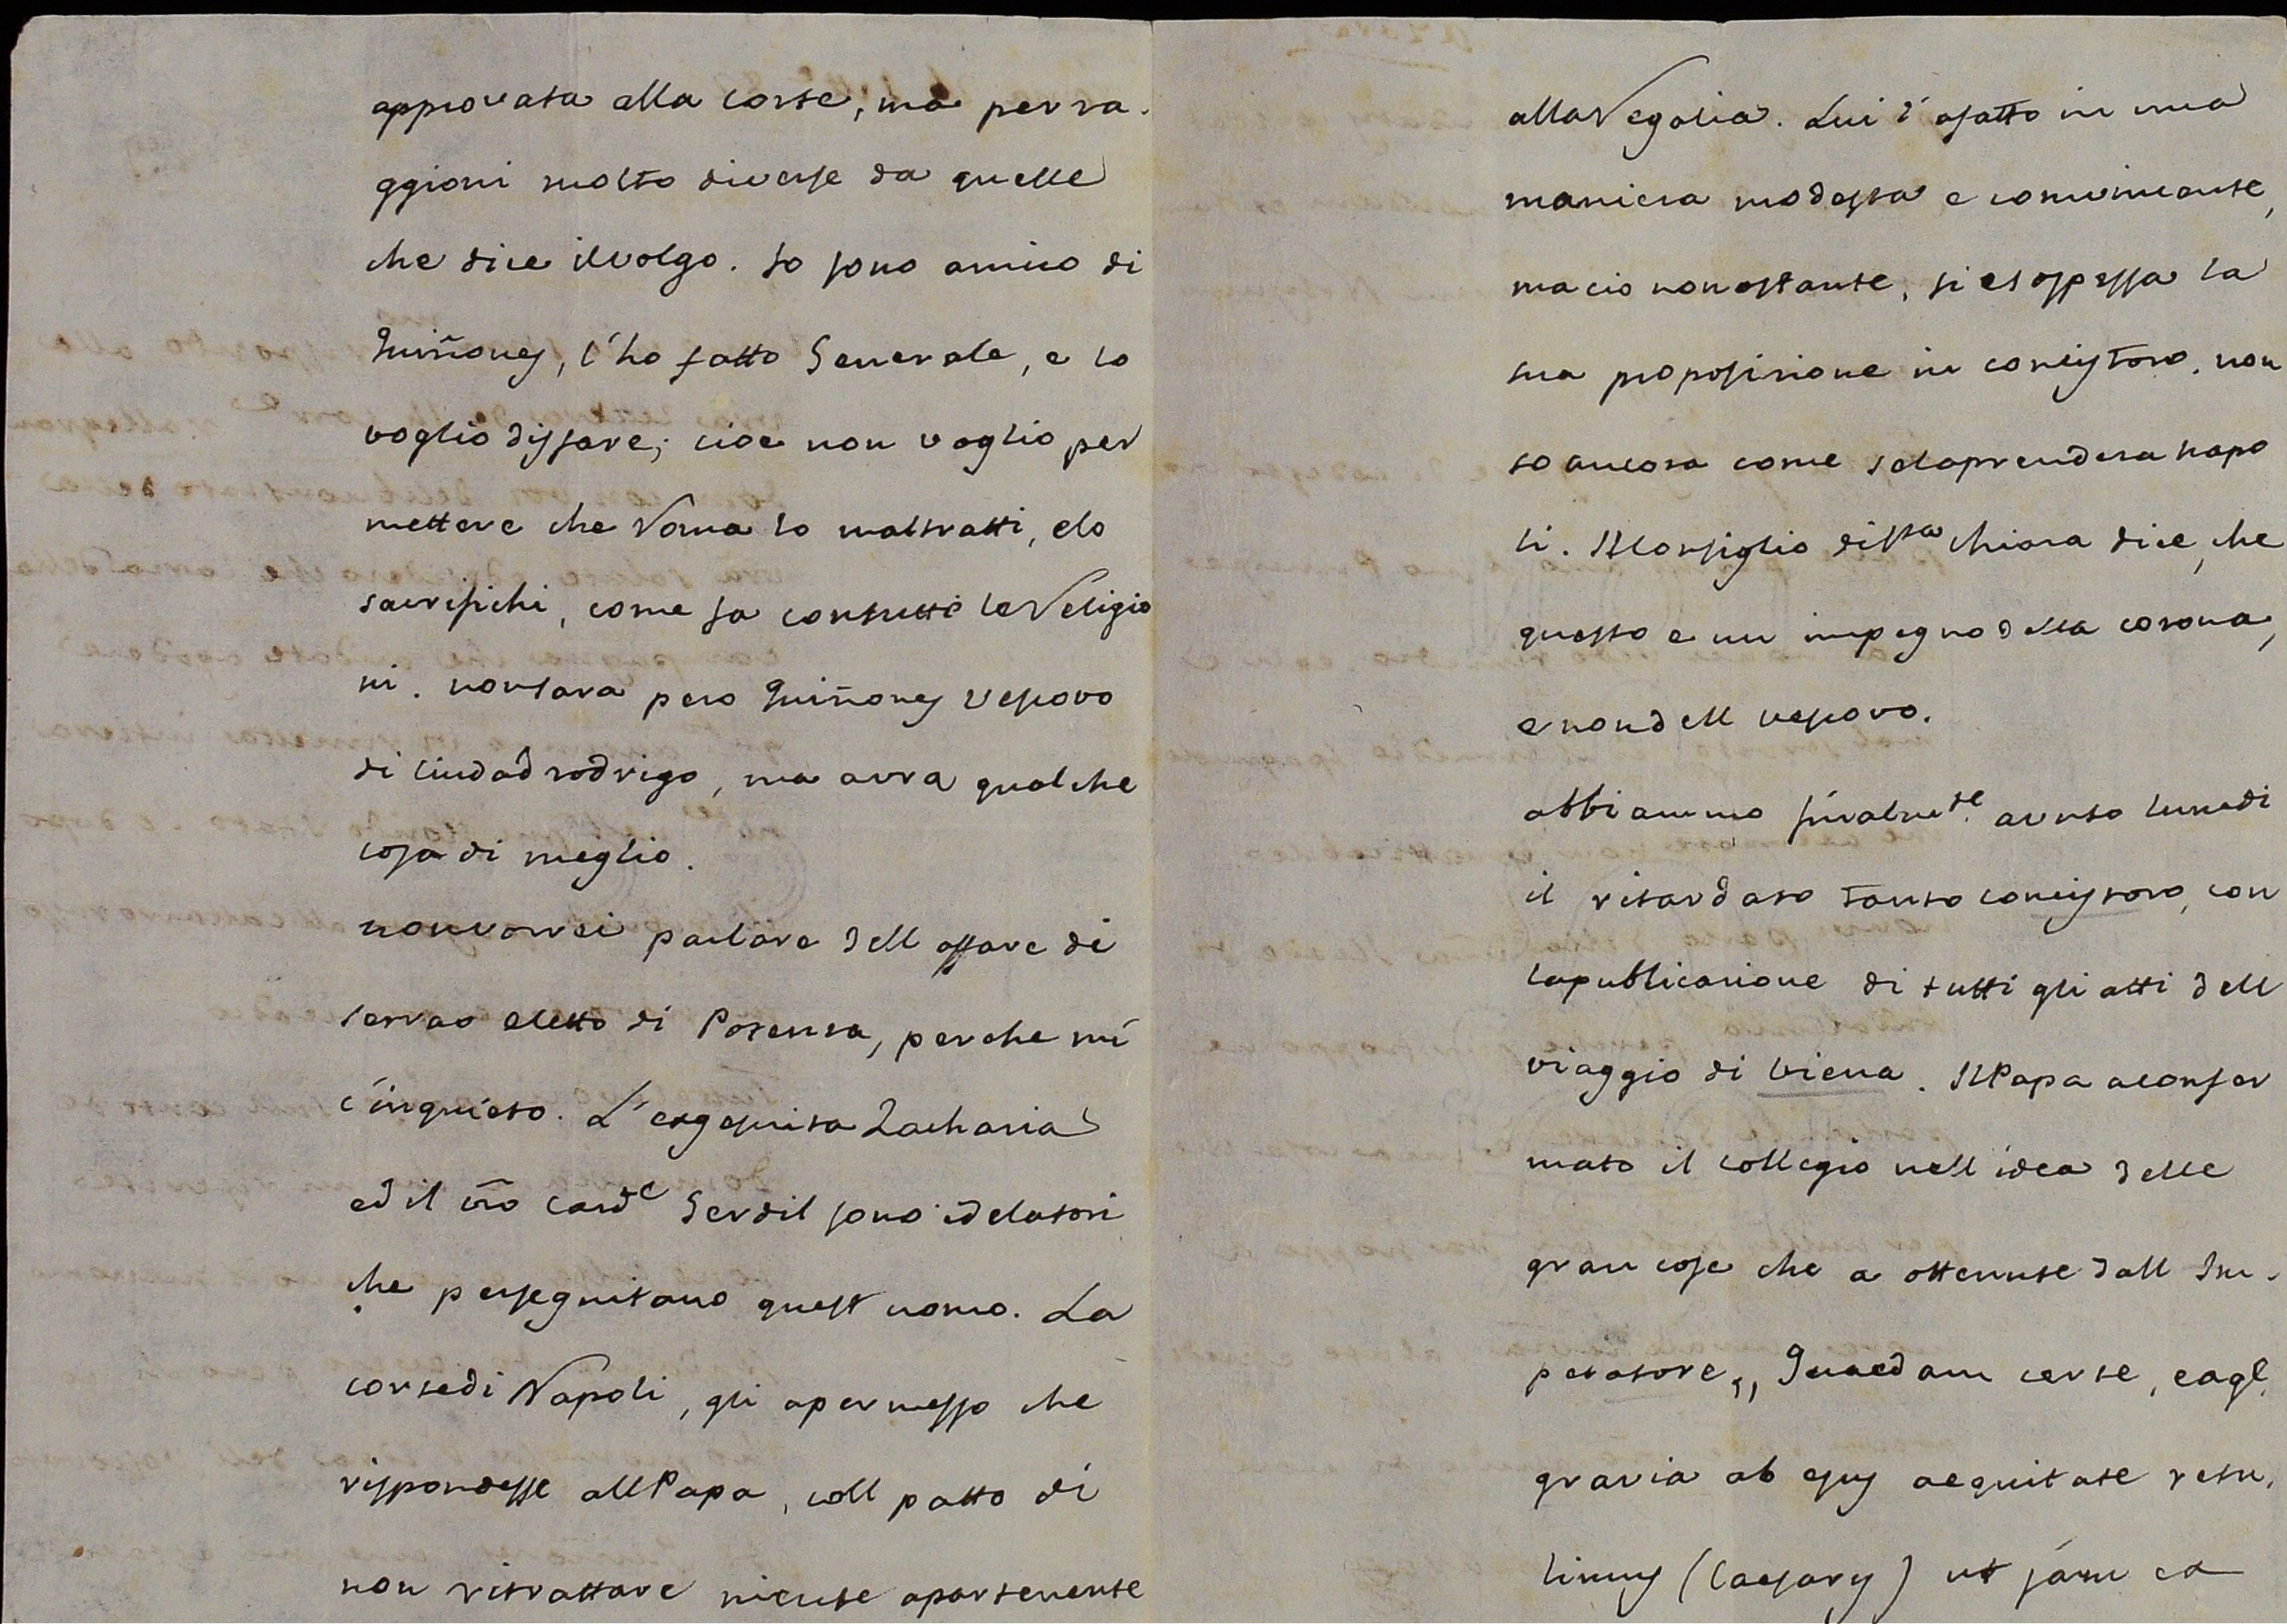 approvata alla corte, ma per ra-
ggioni molto diverse da quelle
che dice il volgo. Io sono amico di
Quiñones, l'ho fatto Generale, e lo
voglio disfare; cioe non voglio per
mettere che Roma lo maltratti, elo
sacrifichi, come fa contutti le Religio
ni. non sara pero Quiñones Vescovo
di Ciudad rodrigo, ma avra qualche
cosa di meglio.
non vorrei parlare dell affare di
serrao eletto di Potenza, perche mi
inquieto. L' exgesuita Zacharia
ed il vr̃o Card.e Gerdil sono i delatori
che perseguitano quest uomo. La
corte di Napoli, gli a permesso che
rispondesse all Papa, coll patto di
non ritrattare niente apartenente
alla Regalia. Lui l' a fatto in una
maniera modesta e convincente,
ma cio non ostante, si e soppressa la
sua proposizione in concistoro. non
so ancora come se la prendera napo
li. Il Consiglio di Sta Chiara dice, che
questo e un impegno della corona,
e non dell vescovo.
abbiammo finalmte. avuto lunedi
il ritardato tanto concistoro, con
la publicazione di tutti gli atti dell
viaggio di Viena. Il Papa a confer
mato il collegio nell'idea delle
gran cose che a ottenute dall Im-
peratore,, Quaedam certe, eaq.
gravia ab ejus aequitate retu,
limus (Caesarys) ut jam et